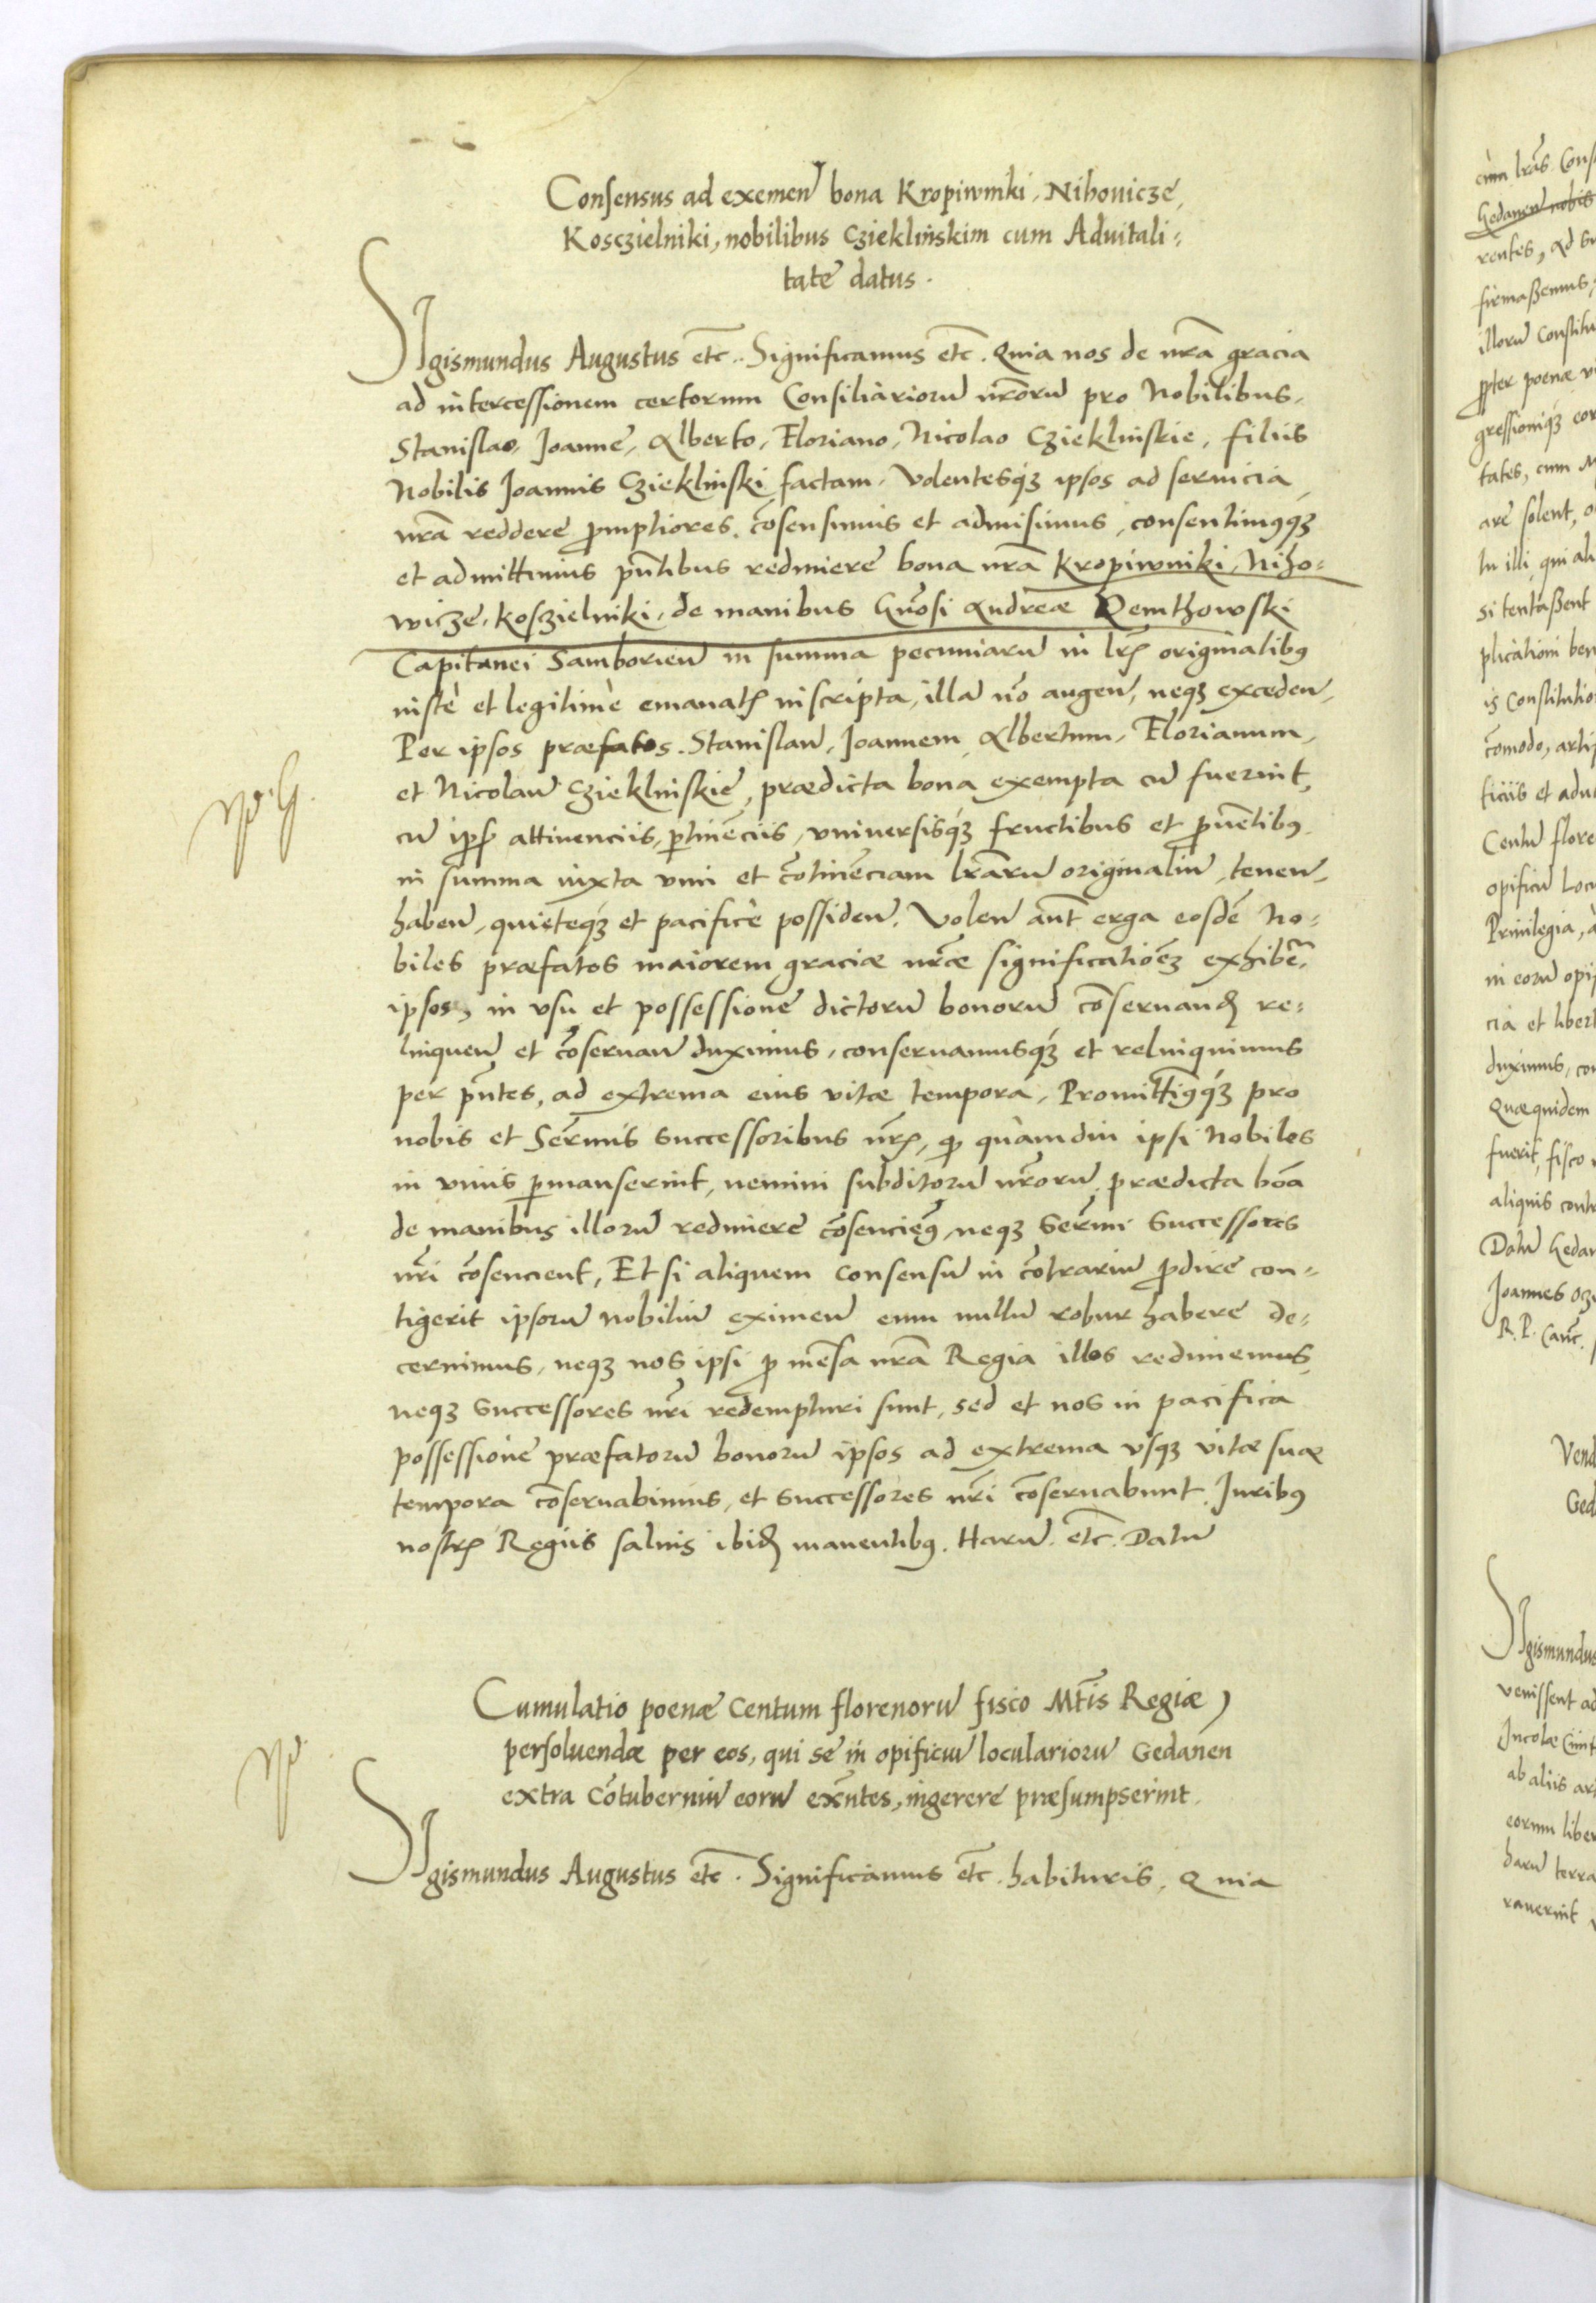 Consensus ad exemeñ bona Kropiwniki, Nihouicze,
Kosczielniki, nobilibus Czieklinskim cum Aduitali=
tate datus.
Sigismundus Augustus etc. Significamus etc. Quia nos de nrã gracia
ad intercessionem certorum Consiliariorũ nrõrũ pro Nobilibus,
Stanislao, Joanne, Alberto, Floriano, Nicolao Czieklinskie, filiis
Nobilis Joannis Czieklinski factam, Volentesq́ꝫ ipsos ad seruicia
nrã reddere ꝓmptiores, cõsensimus et admisimus, consentimꝰqꝫ
et admittimus pñtibus redimere bona nrã Kropiwniki, Nizo=
wicze, Kosczielniki, de manibus Gñosi Andreæ Demthowski
Capitanei Samborieñ in summa pecuniarũ in lrꝭ originalibꝰ
iustè et legitimè emanatꝭ inscripta, illã nõ augeñ, neqꝫ excedeñ,
Per ipsos præfatos Stanislaũ, Joannem, Albertum, Florianum,
et Nicolaũ Czieklinskie, prædicta bona exempta cũ fuerint,
cũ ipsꝭ attinenciis, ꝑtinẽciis, vniuersisq́ꝫ fructibus et ꝓuẽtibꝰ
in summa iuxta vim et cõtinẽciam lrãrũ originaliũ, teneñ,
habeñ, quieteq́ꝫ et pacificè possideñ. Voleñ aũt erga eosdẽ No=
biles præfatos maiorem graciæ nrẽæ significatiõẽꝫ exhibẽr,
ipsos, in vsu et possessione dictorũ bonorũ cõseruandꝭ re=
linqueñ et cõseruañ duximus, conseruamusq́ꝫ et relinquimus
per pñtes, ad extrema eius vitæ tempora, Promittimꝰq́ꝫ pro
nobis et Serẽmis Successoribus nrꝭ, ꝙ quàmdiu ipsi Nobiles
in viuis ꝑmanserint, nemini subditorũ nrõrũ, prædicta bõa
de manibus illorũ redimere cõsenciemꝰ, neqꝫ Serẽmi Successores
nrĩ cõsencient, Et si aliquem consensũ in cõtrariũ ꝓdire con=
tigerit ipsorũ nobiliũ eximeñ eum nullũ robur habere de=
cernimus, neqꝫ nos ipsi ꝓ mẽsa nrã Regia illos redimemus,
neqꝫ Successores nrĩ redempturi sunt, sed et nos in pacifica
possessione præfatorũ bonorũ ipsos ad extrema vsqꝫ vitæ suæ
tempora cõseruabimus, et Successores nrĩ cõseruabunt. Juribꝰ
nostrꝭ Regiis saluis ibidꝭ manentibꝰ. Harũ. etc. Datũ
Cumulatio poenæ Centum florenorũ fisco Mtĩs Regiæ,
persoluendæ per eos, qui se in opificiũ loculariorũ Gedaneñ
extra Cõtuberniũ eorũ exñtes, ingerere præsumpserint.
Sigismundus Augustus etc. Significamus etc. habituris, Quia
cùm lrãs Cons
Gedaneñ nobis
rentes, Ad
firmaßemus,
illorũ Constitu
ꝓpter poenæ
gressioniq́ꝫ eor
tates, cum
are solent,
illi, qui ali
si tentaßent
plicationi ben
is Constitutio
cõmodo, arti
ficiis et adu
Centũ flore
opificũ Locu
Priuilegia,
in eorũ opi
cia et libert
duximus, con
Quæquidem
fuerit, fisco
aliquis contr
Datũ Gedan
Joannes
R. P. Canc.
Vend
Ged
Sigismundus
venissent ad
Incolæ Ciuit
ab aliis ar
eorum liber
harũ terra
rauerint